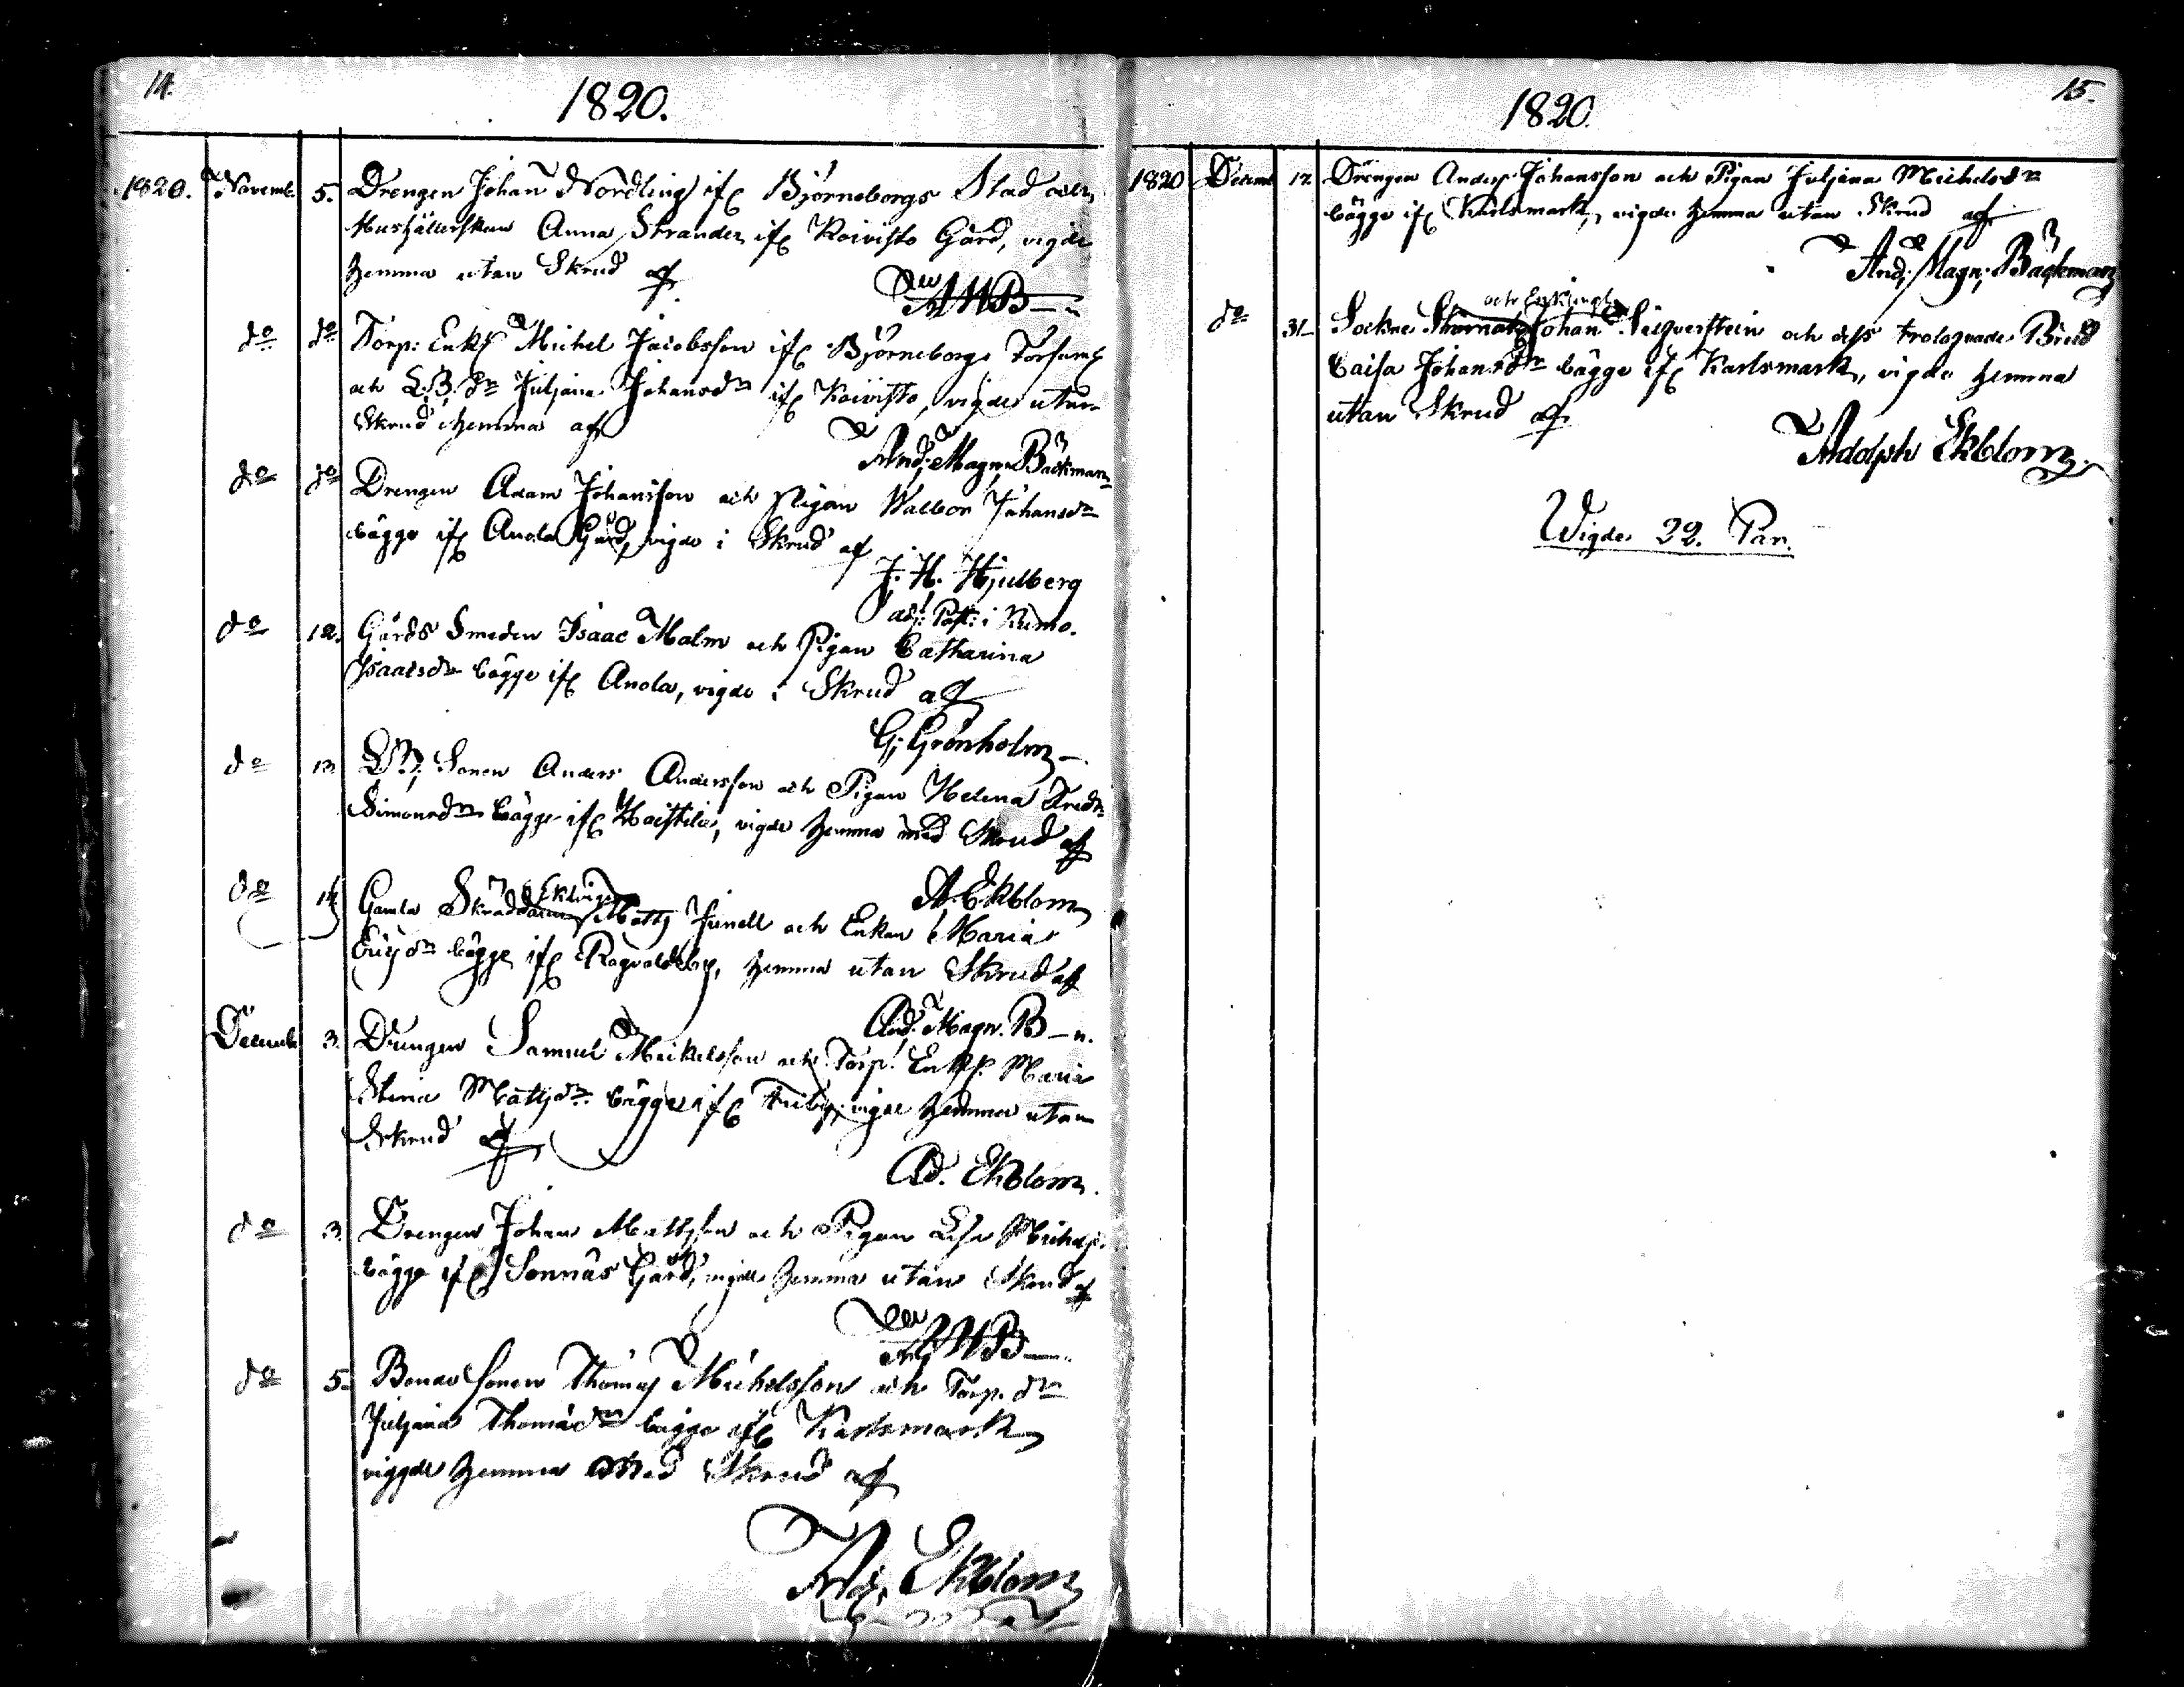 14.
1820.
1820. Novemb. 5. Drengen Johan Nordling if. Björneborgs Stad och
Hushållerskan Anna Strander if. Koivisto Gård, vigde
hemma utan Skrud af
AMB
do do Torp: Enkl. Michel Jacobsson if. Björneborgs Församl.
och L.B. dr Juljana Johansdr if. Koivisto, vigde utan
Skrud hemma af
And. Magn. Bäckman
do do Drengen Adam Johansson och Pigan Walbor Johansdr
bägge if. Anola Gård, vigde i Skrud af
J. H. Hjulberg
adj. Past: i Kumo.
do 12. Gårds Smeden Isaac Malm och Pigan Catharina
Isaacsdr bägge if. Anola, vigde i Skrud af
G. Grönholm
do 13. L.B. Sonen Anders Andersson och Pigan Helena
Simonsdr bägge if. Haistila, vigde hemma med Skrud af
A. Ekblom
Enkling
do Gamla Skräddaren Matts Junell och Enkan Maria
bägge if. Ragvaldsby, hemma utan Skrud af
And. Magn. B—n.
Decemb. 3. Drengen Samuel Mickelsson och Torp. Maria
Stina Mattsdr bägge if. Friby, vigde hemma utan
Skrud af
Ad. Ekblom.
do 3. Drengen Johan Mattsson och Pigan Lisa
bägge if. Sonnäs Gård, vigde hemma utan Skrud af
AMB
do 5. Bonde Sonen Thomas Michelsson och Torp. dr
Juljana Thomasdr bägge if. Karlsmark
viggde hemma med Skrud af
Ad. Ekblom
15.
1820.
1820 Decemb 17. Drengen Anders Johansson och Pigan Juljana Michelsdr
bägge if. Karlsmark, vigde hemma utan Skrud af
And. Magn. Bäckman
och Enklingen
do 31. Sockne Johan Silqverstein och dess trolofvade Brud
Caisa Johansdr bägge if. Karlsmark, vigde hemma
utan Skrud af
Adolph Ekblom.
Wigde 22. Par.